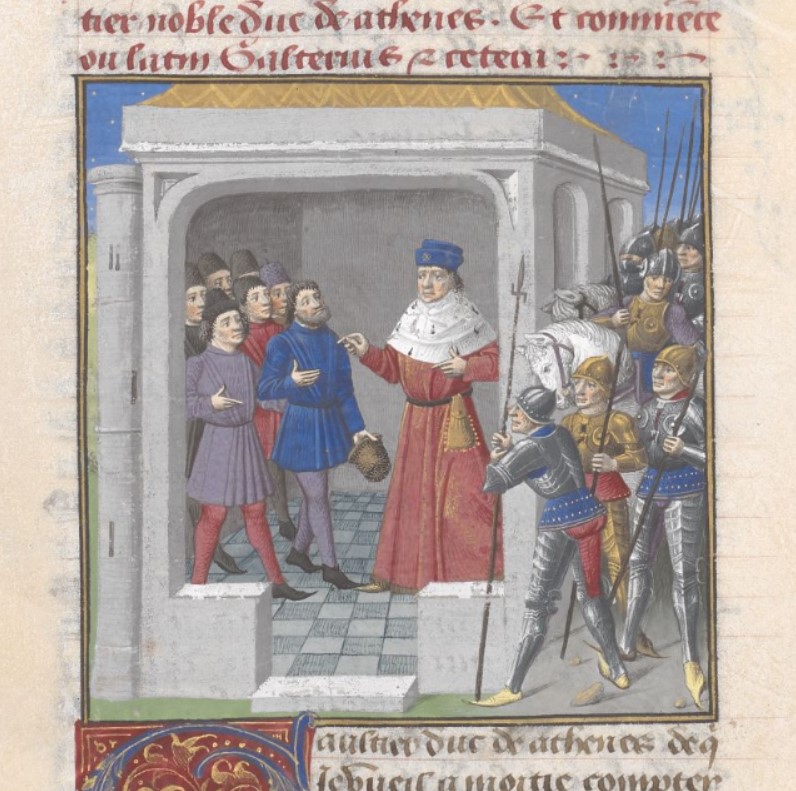 tier noble duc de athenes. Et commēce
ou latin Galterius ⁊ cetera
aultier duc de athenes de q̄
Je vueil a moitie compter